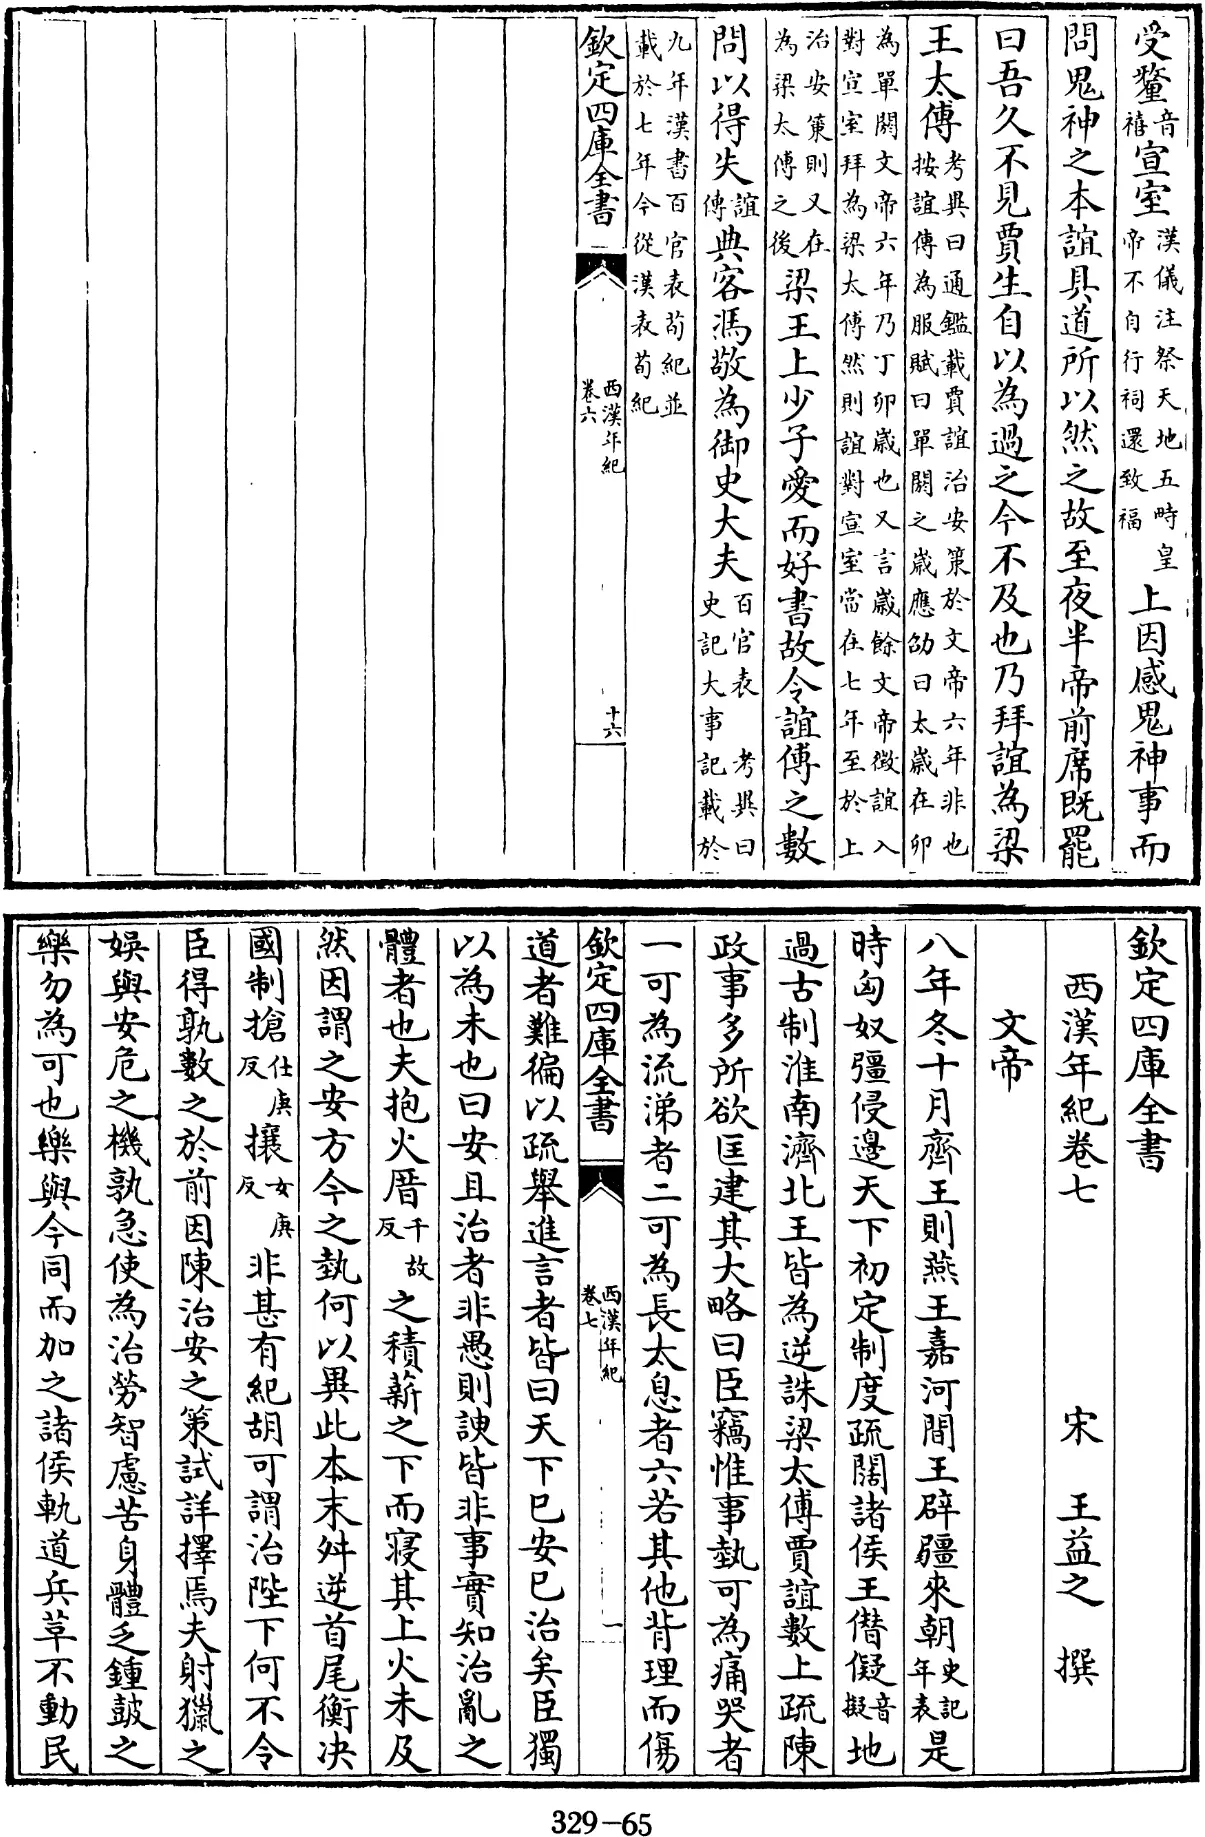 受釐音禧宣室漢儀注祭天地五時皇帝不自行祠還致福上因感鬼神事而
問鬼神之本誼具道所以然之故至夜半帝前席既罷
曰吾久不見賈生自以為過之今不及也乃拜誼為梁
王太傅考異曰通鑑載賈誼治安策於文帝六年非也按誼傳為服賦曰單閼之嵗應劭曰太嵗在卯
為單閼文帝六年乃丁卯嵗也又言嵗餘文帝徴誼入對宣室拜為梁太傅然則誼對宣室當在七年至於上
治安策則又在為梁太傅之後梁王上少子愛而好書故令誼傅之數
問以得失誼傳典客馮敬為御史大夫百官表 考異曰史記大事記載於
九年漢書百官表荀紀並載於七年今從漢表荀紀
欽定四庫全書
西漢年紀
卷六
十六
欽定四庫全書
西漢年紀卷七
宋 王益之 撰
文帝
八年冬十月齊王則燕王嘉河間王辟疆來朝史記年表是
時匈奴彊侵邊天下初定制度疏闊諸侯王僭儗音擬地
過古制淮南濟北王皆為逆誅梁太傅賈誼數上疏陳
政事多所欲匡建其大略曰臣竊惟事埶可為痛哭者
一可為流涕者二可為長太息者六若其他背理而傷
欽定四庫全書
西漢年紀
卷七
一
道者難徧以疏舉進言者皆曰天下已安已治矣臣獨
以為未也曰安且治者非愚則諛皆非事實知治亂之
體者也夫抱火厝千故反之積薪之下而寑其上火未及
然因謂之安方今之埶何以異此本末舛逆首尾衡决
國制搶仕庚反攘女庚反非甚有紀胡可謂治陛下何不令
臣得孰數之於前因陳治安之策試詳擇焉夫射獵之
娛與安危之機孰急使為治勞智慮苦身體乏鍾鼓之
樂勿為可也樂與今同而加之諸侯軌道兵革不動民
329-65